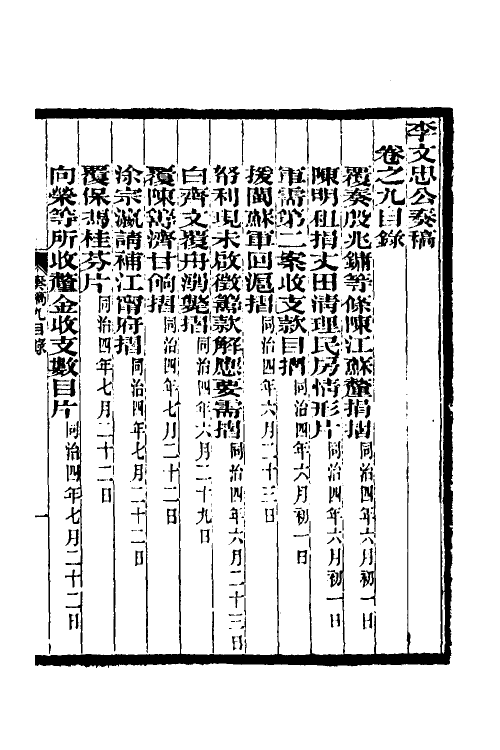 李文忠公奏稿
卷之九目錄
覆奏殷兆鏞等條陳江蘇釐捐摺同治四年六月初一日
陳明租捐丈田清理民房情形片同治四年六月初一日
軍需第二案收支款目摺同治四年六月初一日
援閩蘇軍回滬摺同治四年六月二十三日
餉利現未啟徵籌款解應要需摺同治四年六月二十三日
白齊文覆舟溺斃摺同治四年六月二十九日
覆陳籌濟甘餉摺同治四年七月二十二日
涂宗瀛請補江甯府摺同治四年七月二十二日
覆保馮桂芬片同治四年七月二十二日
向榮等所收釐金收支數目片同治四年七月二十二日
奏稿九目錄
一